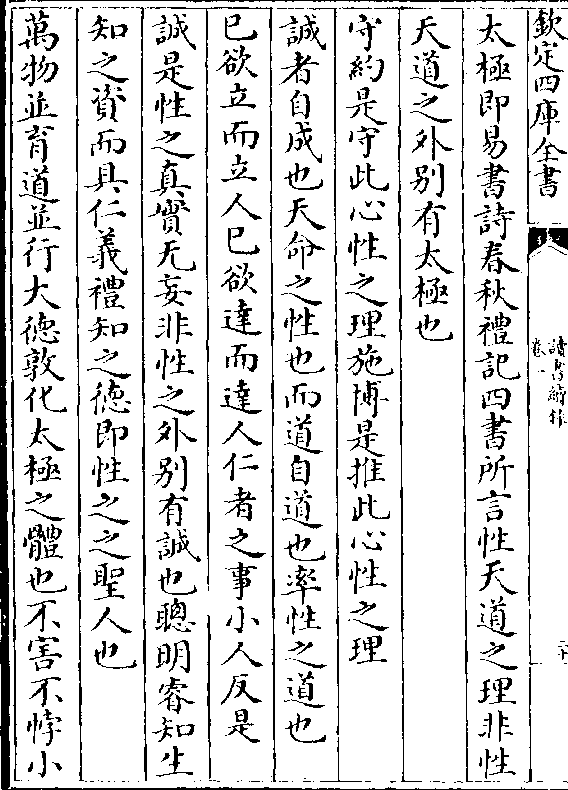 欽定四庫全書
讀書續錄
卷一
太極即易書詩春秋禮記四書所言性天道之理非性
天道之外别有太極也
守約是守此心性之理施博是推此心性之理
誠者自成也天命之性也而道自道也率性之道也
已欲立而立人已欲達而達人仁者之事小人反是
誠是性之真實无妄非性之外别有誠也聰明睿知生
知之資而具仁義禮知之德即性之之聖人也
萬物並育道並行大德敦化太極之體也不害不悖小